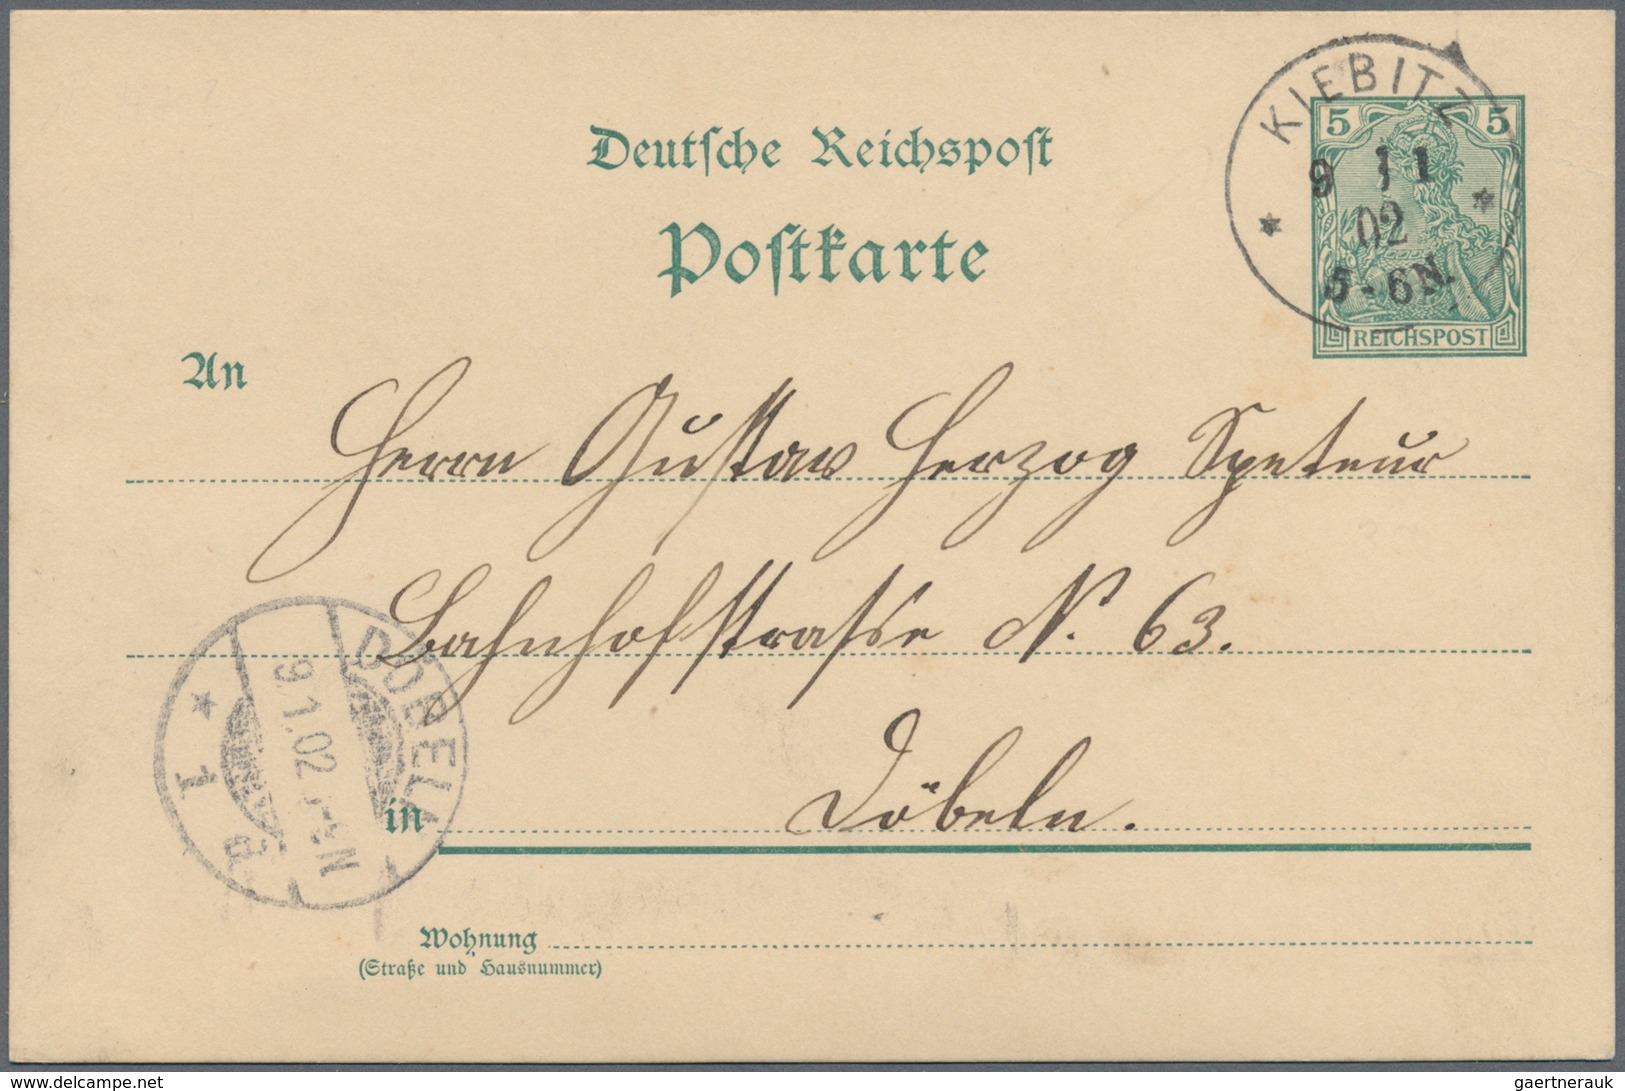 Deutsche Reichspost
Postkarte
KIEBITZ
5 5
9 1 1
02
5-6N.
REICHSPOST
An
Herrn Gustav Herzog Speteur
Bahnhofstrasse N. 63.
DÖBELN
9.1.02
1
in Döbeln.
Wohnung
(Straße und Hausnummer)
www.delcampe.net
gaertnerauk